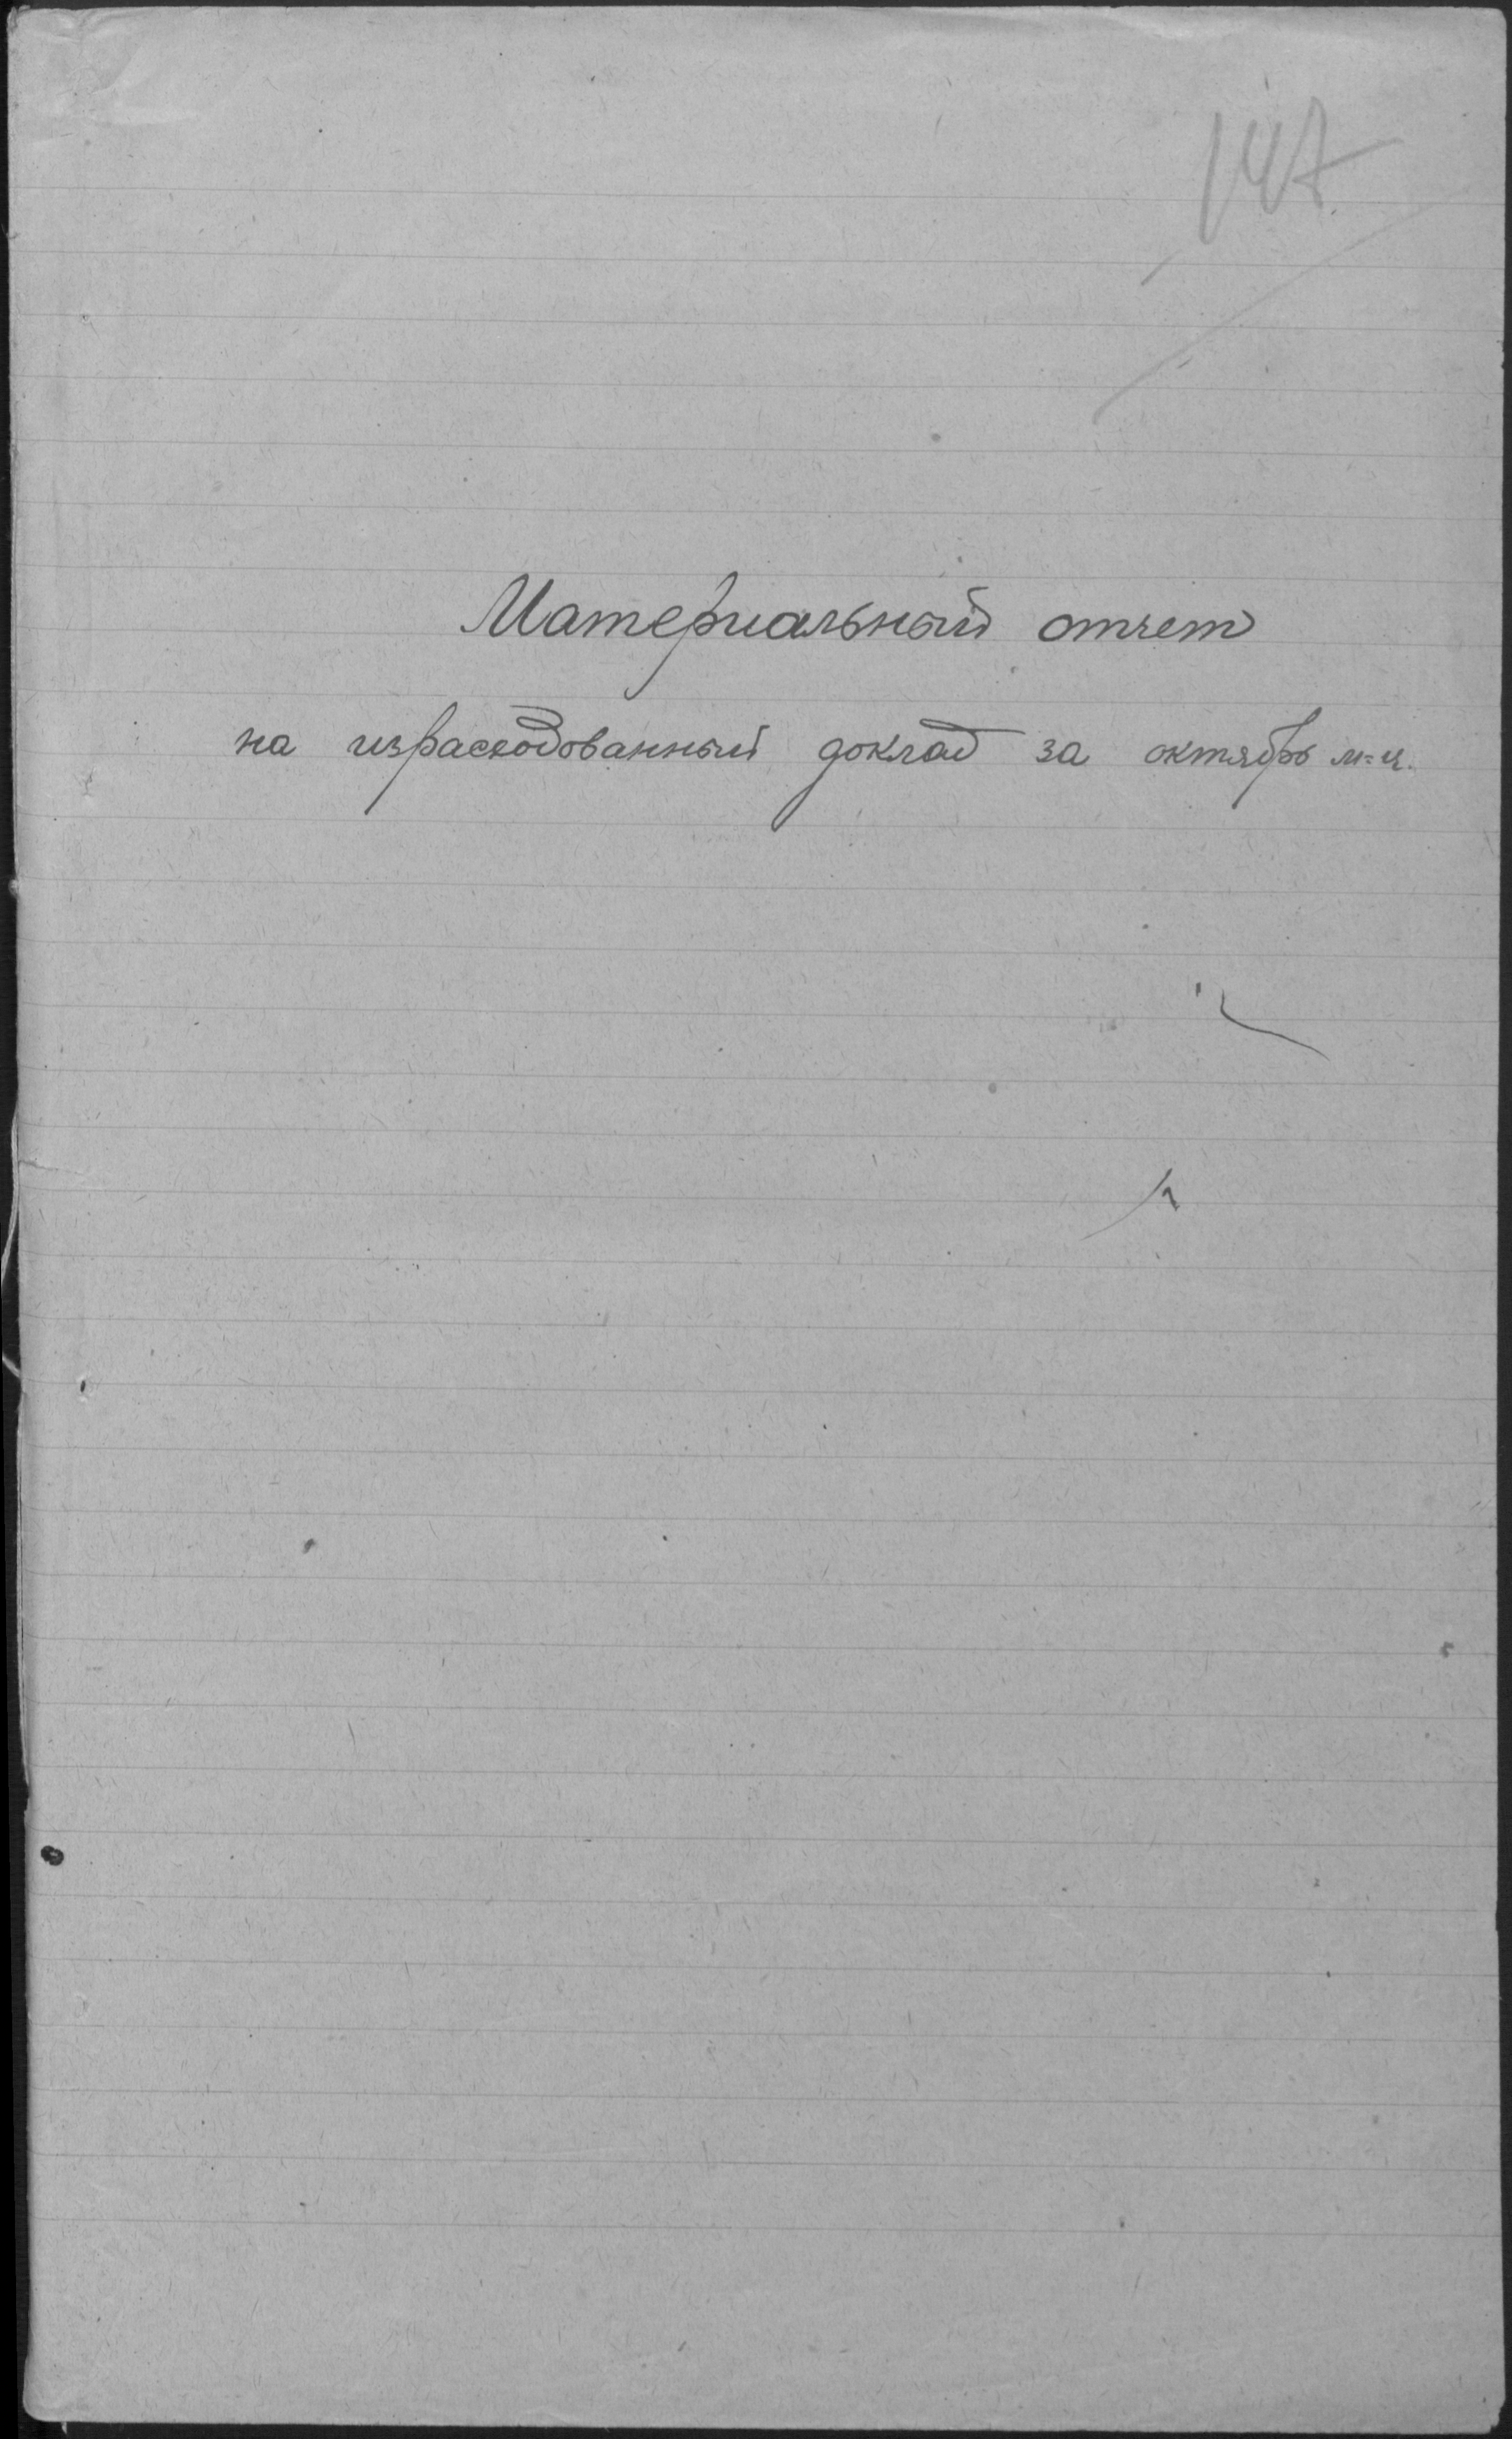 147
Материальный отчет
на израсходованный доклад за октябрь м=ц.